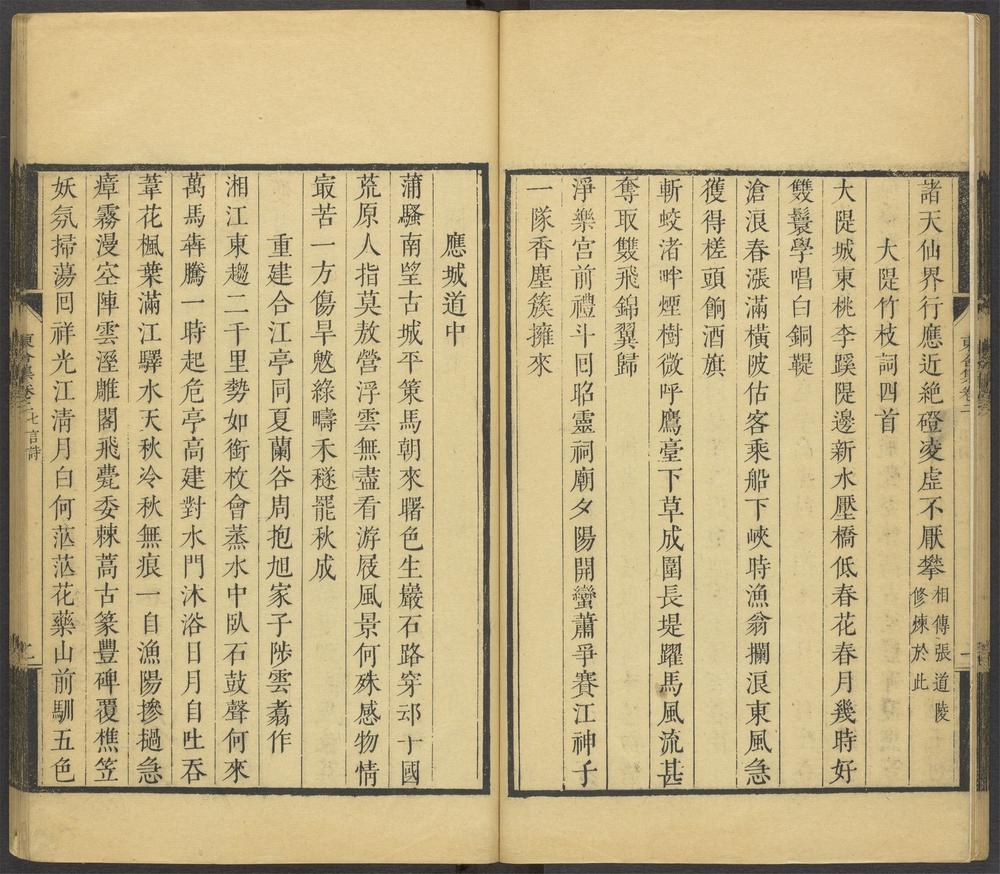 諸天仙界行應近絕磴凌虛不厭攀相傳張道陵
修煉於此
大隄竹枝詞四首
大隄城東桃李蹊隄邊新水壓橋低春花春月幾時好
雙鬟學唱白銅鞮
滄浪春漲滿橫陂估客乘船下峽時漁翁攔浪東風急
獲得槎頭餉酒旗
斬蛟渚畔煙樹微呼鷹臺下草成圍長堤躍馬風流甚
奪取雙飛錦翼歸
淨樂宮前禮斗回昭靈祠廟夕陽開蠻蕭爭賽江神子
一隊香塵簇擁來
應城道中
蒲騷南望古城平策馬朝來曙色生巖石路穿邔十國
荒原人指莫敖營浮雲無盡看游屐風景何殊感物情
最苦一方傷旱魃綠疇禾穟罷秋成
重建合江亭同夏蘭谷周抱旭家子陟雲翥作
湘江東趨二千里勢如銜枚會蒸水中臥石鼓聲何來
萬馬犇騰一時起危亭高建對水門沐浴日月自吐吞
葦花楓葉滿江驛水天秋冷秋無痕一自漁陽摻撾急
瘴霧漫空陣雲溼雕閣飛甍委棘蒿古篆豐碑覆樵笠
妖氛掃蕩回祥光江清月白何茫茫花藥山前馴五色
東合集卷二 七言詩 二